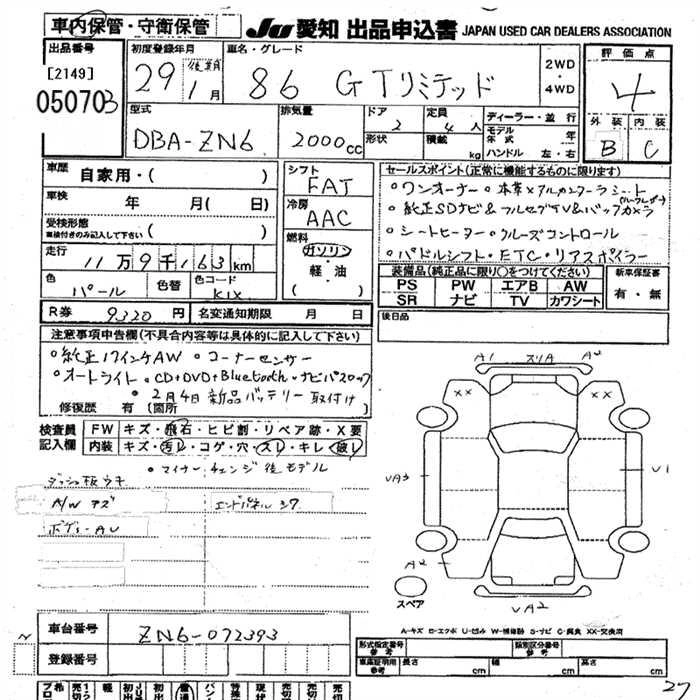 車内保管・守衛保管
JU 愛知 出品申込書 JAPAN USED CAR DEALERS ASSOCIATION
出品番号
[2149]
05070
初度登録年月
29 1月
車名・グレード
86 GTリミテッド
2WD
・
4WD
評価点
4
外装 内装
B C
型式
DBA-ZN6
排気量
2000cc
ドア
2
形状
定員
4人
積載
kg
ディーラー・並行
モデル年式 年
ハンドル 左・右
車歴
自家用・( )
車検 年 月( 日)
受検形態
車検付きのみ記入して下さい ( )
走行
11万9千163km
色
パール
色替
色コード
K1X
シフト
FAT
冷房
AAC
燃料
ガソリン
・
軽・油
( )
セールスポイント(正常に機能するものに限ります)
・ワンオーナー ・本革×アルカンターラシート
・純正SDナビ&フルセグTV&バックカメラ
・シートヒーター・クルーズコントロール
・パドルシフト・ETC・リアスポイラー
装備品(純正品に限り○をつけてください)
PS PW エアB AW
SR ナビ TV カワシート
新車保証書
有・無
R券 9320円 名変通知期限 月 日
後日品
注意事項申告欄(不具合内容等は具体的に記入して下さい)
・純正17インチAW ・コーナーセンサー
・オートライト・CD+DVD+Bluetooth・ナビパスロック
・2月4日新品バッテリー取付け
修復歴 有 (箇所
検査員記入欄
FW キズ・飛石・ヒビ割・リペア跡・X要
内装 キズ・汚レ・コゲ・穴・スレ・キレ・破レ
・マイナーチェンジ後モデル
A/W キズ
ボデーAU
A1 スリA A2
XX XX
UA3
U1
UA2
スペア
A-キズ E-エクボ U-凹み W-補修跡 S-サビ C-腐食 XX-交換済
車台番号 ZN6-072393
登録番号
形式指定番号 参考
類別区分番号 参考
車庫証明用 参考 長さ cm 幅 cm 高さ cm
27